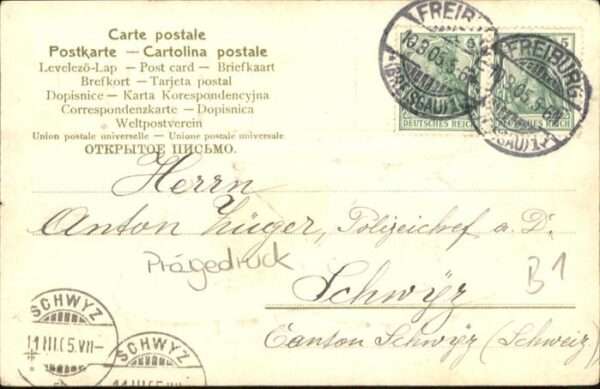 Carte postale
Postkarte — Cartolina postale
Levelező-Lap — Post card — Briefkaart
Brefkort — Tarjeta postal
Dopisnice — Karta Korespondencyjna
Correspondenzkarte — Dopisnica
Weltpostverein
Union postale universelle — Unione postale universale
ОТКРЫТОЕ ПИСЬМО.
FREIBURG
(BREISGAU)
DEUTSCHES REICH
FREIBURG
5
DEUTSCHES REICH
Herrn
Anton Züger, Polizeichef a. D.
Prägedruck
B1
Schwyz
Canton Schwyz (Schweiz)
SCHWYZ
11 III 05. VII–
SCHWYZ